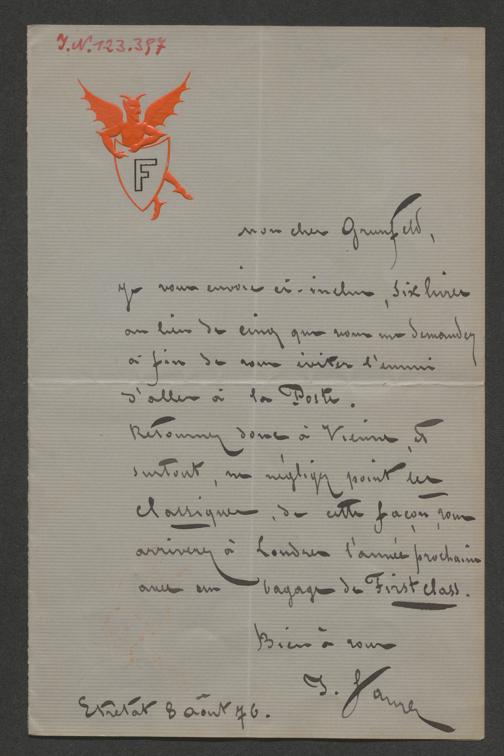 I.N. 123.397
F
Mon cher Grunfeld,
Je vous envoie ci-inclus, six livres
au lieu de cinq que vous me demandez
à fin de vous éviter l'ennui
d'aller à la Poste.
Retournez donc à Vienne, et
surtout, ne négligez point les
classiques, de cette façon, vous
arriverez à Londres l'année prochaine
avec un bagage de First class.
Bien à vous
Etretat 8 août 76.